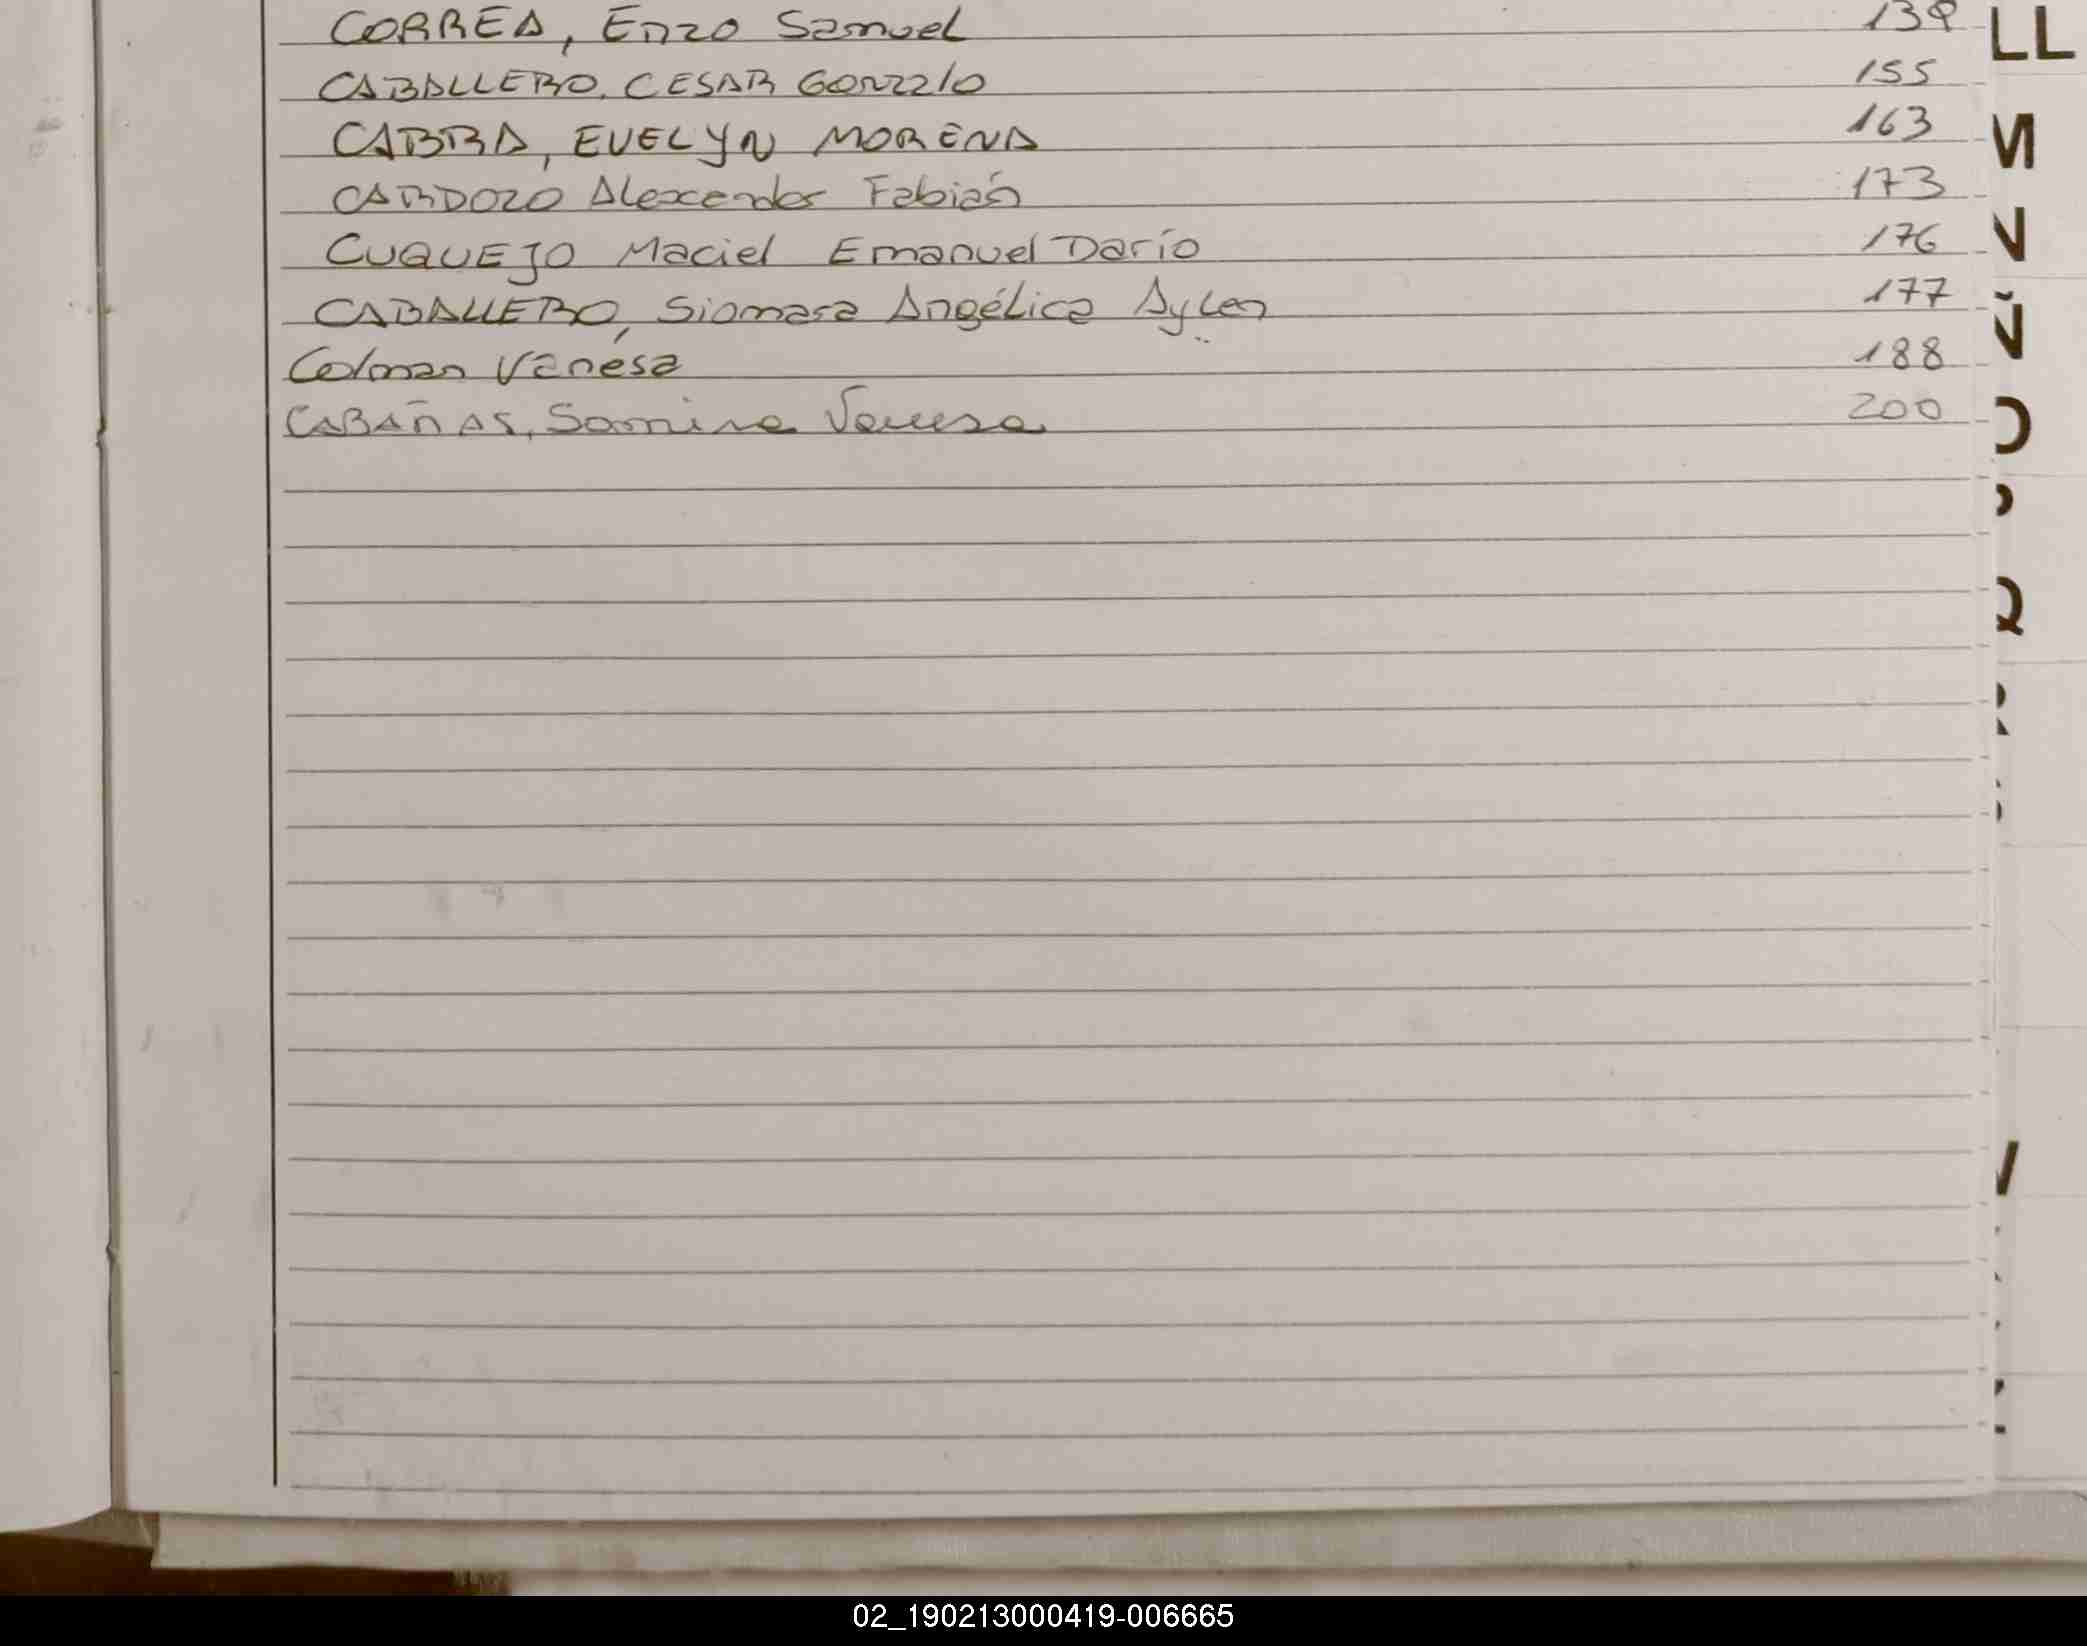 CORREA, Enzo Samuel 139
LL
CABALLERO, CESAR GONZALO 155
CABRA, EVELYN MORENA 163
M
CARDOZO Alexander Fabián 173
CUQUEJO Maciel Emanuel Darío 176
N
CABALLERO, Siomara Angélica Aylen 177
Ñ
Colman Vanesa 188
CABAÑAS, Samira Vanesa 200
O
P
Q
R
V
02_190213000419-006665